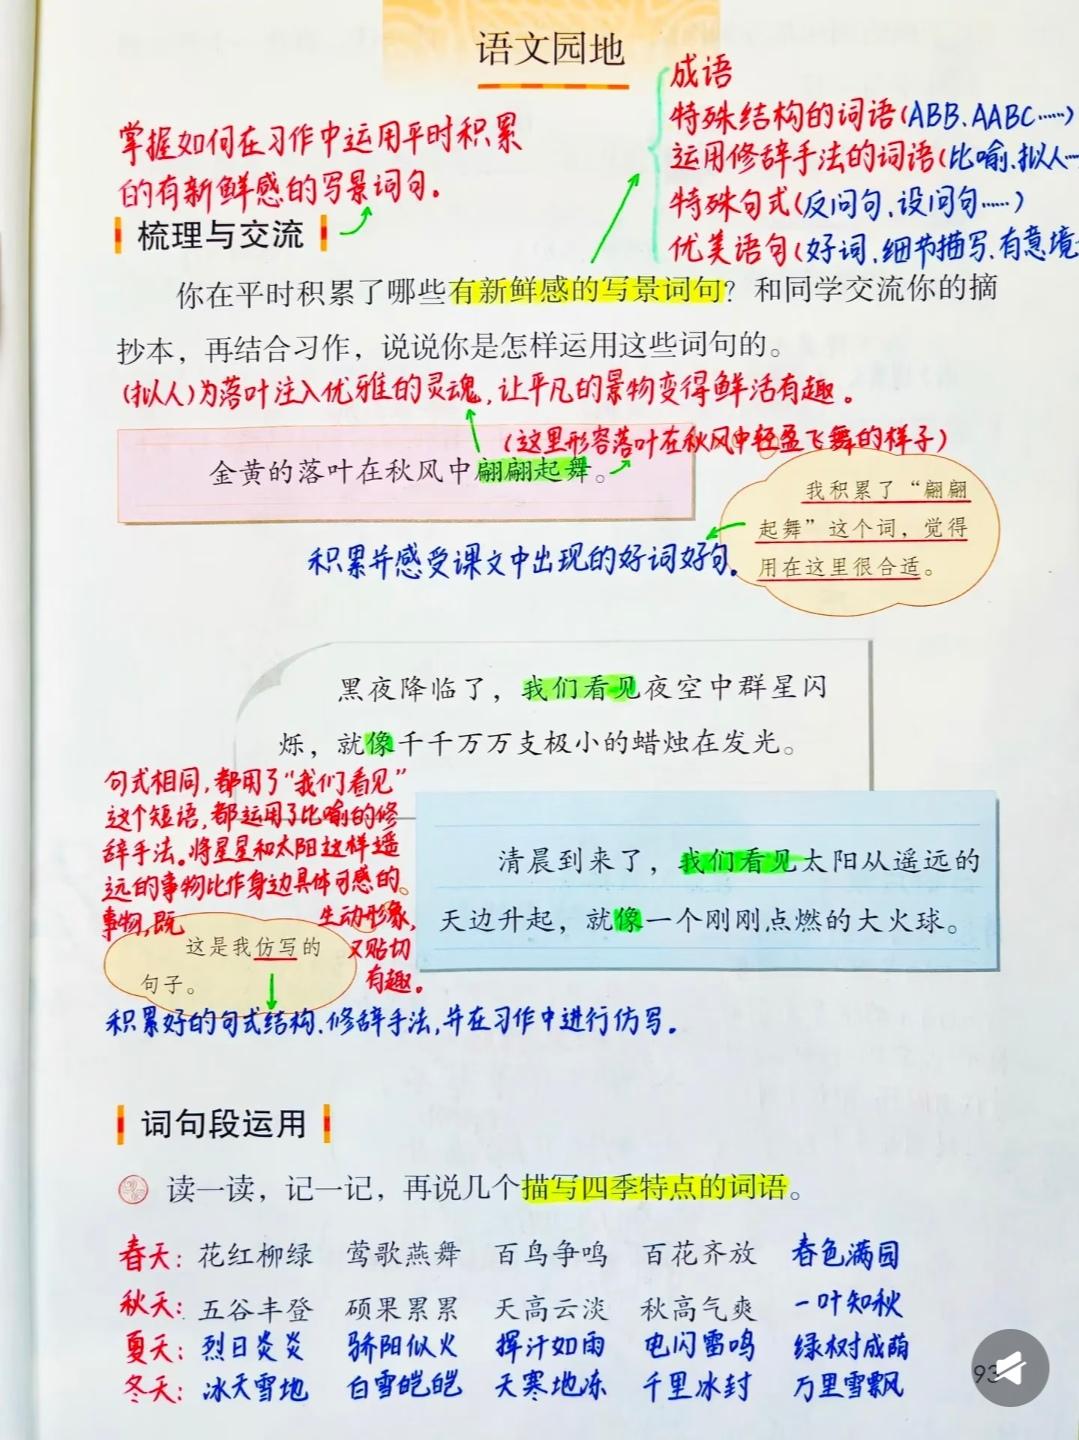 语文园地
成语
特殊结构的词语(ABB、AABC……)
运用修辞手法的词语(比喻、拟人…
特殊句式(反问句、设问句……)
优美语句(好词、细节描写、有意境
掌握如何在习作中运用平时积累
的有新鲜感的写景词句。
梳理与交流
你在平时积累了哪些有新鲜感的写景词句？和同学交流你的摘
抄本，再结合习作，说说你是怎样运用这些词句的。
(拟人)为落叶注入优雅的灵魂,让平凡的景物变得鲜活有趣。
(这里形容落叶在秋风中轻盈飞舞的样子)
金黄的落叶在秋风中翩翩起舞。
我积累了“翩翩
起舞”这个词，觉得
用在这里很合适。
积累并感受课文中出现的好词好句。
黑夜降临了，我们看见夜空中群星闪
烁，就像千千万万支极小的蜡烛在发光。
句式相同,都用了“我们看见”
这个短语,都运用了比喻的修
辞手法。将星星和太阳这样遥
远的事物比作身边具体可感的
事物,既生动形象,
又贴切
有趣。
清晨到来了，我们看见太阳从遥远的
天边升起，就像一个刚刚点燃的大火球。
这是我仿写的
句子。
积累好的句式结构、修辞手法,并在习作中进行仿写。
词句段运用
读一读，记一记，再说几个描写四季特点的词语。
春天: 花红柳绿 莺歌燕舞 百鸟争鸣 百花齐放 春色满园
秋天: 五谷丰登 硕果累累 天高云淡 秋高气爽 一叶知秋
夏天: 烈日炎炎 骄阳似火 挥汗如雨 电闪雷鸣 绿树成荫
冬天: 冰天雪地 白雪皑皑 天寒地冻 千里冰封 万里雪飘
93